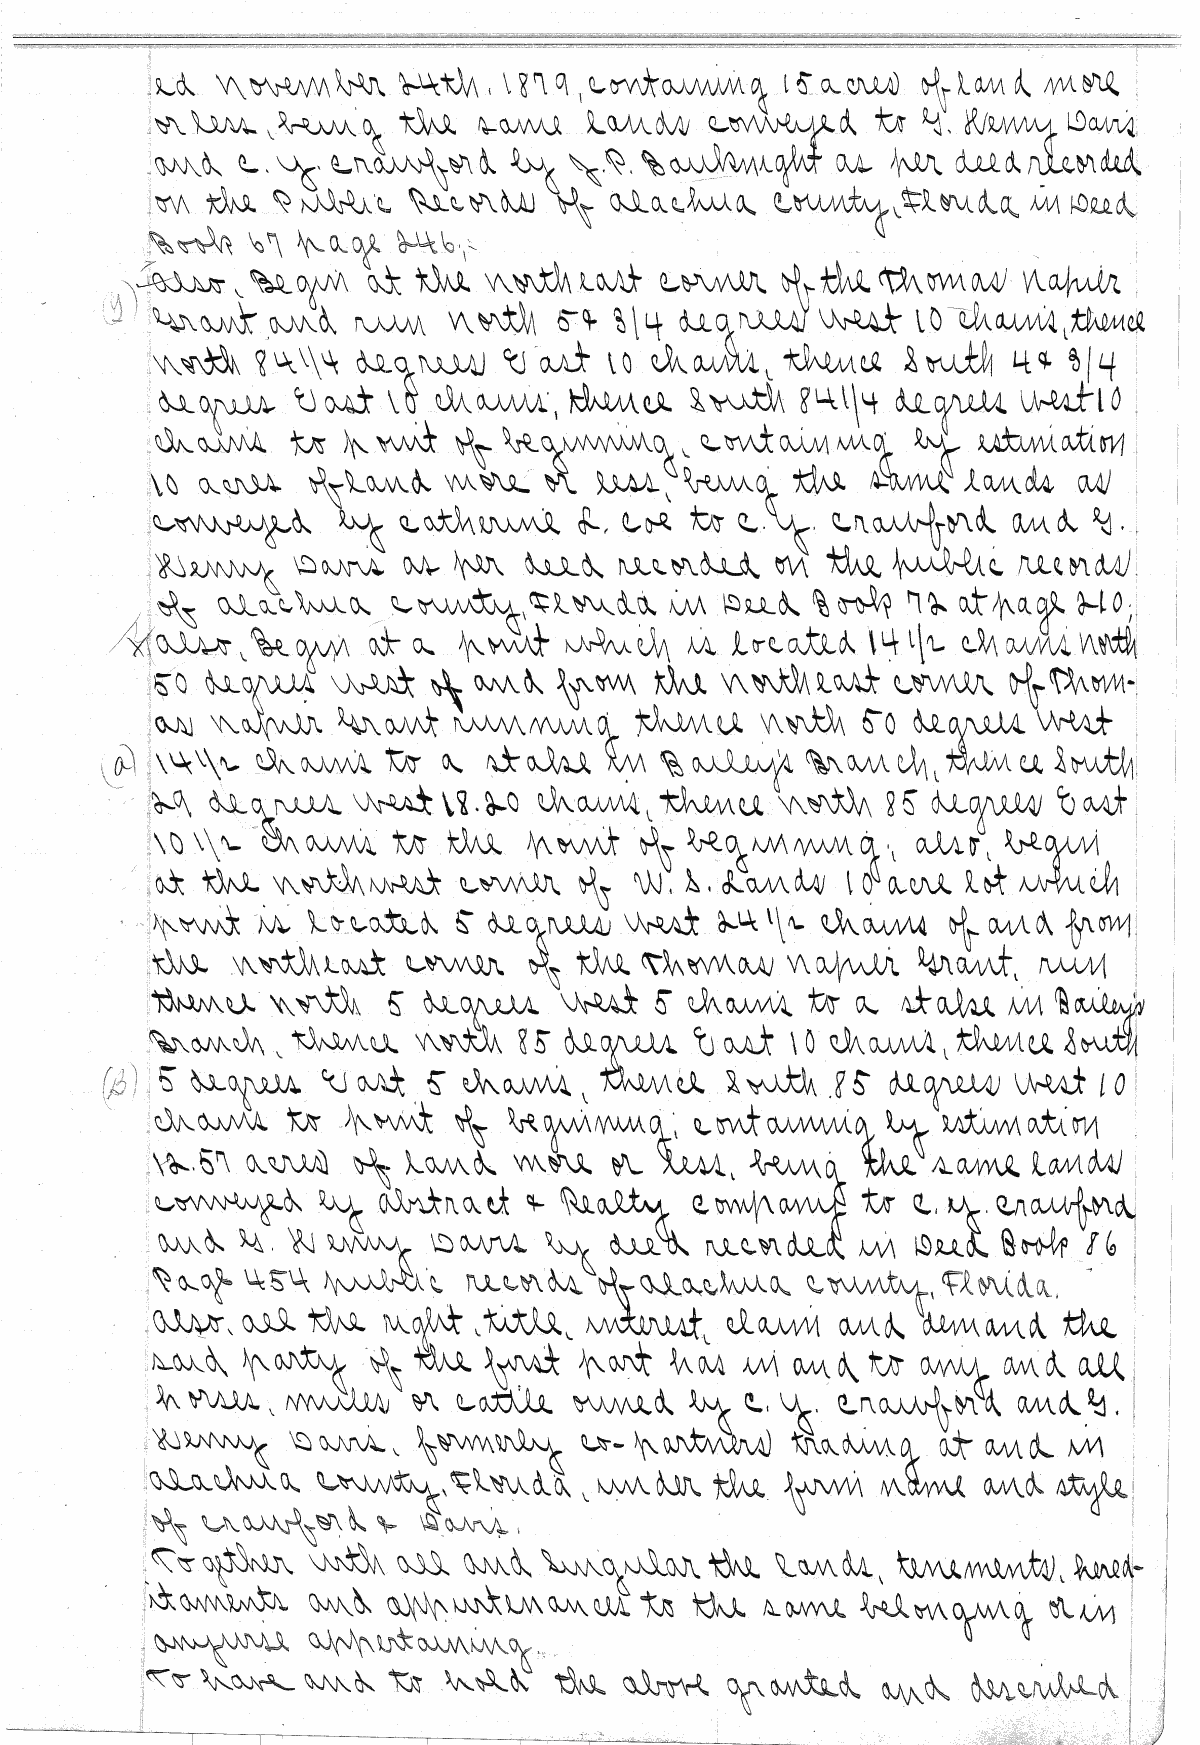 ed November 24th, 1879, containing 15 acres of land more
or less, being the same lands conveyed to G. Henny Davis
and C. Y. Crawford by J. P. Bauknight as per deed recorded
on the Public Records of Alachua County, Florida in Deed
Book 67 page 246;
Also, Begin at the northeast corner of the Thomas Napier
(y) Grant and run north 5 & 3/4 degrees West 10 chains, thence
north 84 1/4 degrees East 10 chains, thence South 4 & 3/4
degrees East 10 chains; thence South 84 1/4 degrees West 10
chains to point of beginning, containing by estimation
10 acres of land more or less, being the same lands as
conveyed by Catherine L. Coe to C. Y. Crawford and G.
Henny Davis as per deed recorded on the public records
of Alachua County, Florida in Deed Book 72 at page 210;
Also, Begin at a point which is located 14 1/2 chains north
50 degrees West of and from the northeast corner of Thom-
as Napier Grant running thence north 50 degrees West
(a) 14 1/2 chains to a stake in Bailey's Branch, thence South
29 degrees West 18.20 chains, thence north 85 degrees East
10 1/2 chains to the point of beginning; also, begin
at the northwest corner of W. S. Lands 10 acre lot which
point is located 5 degrees West 24 1/2 chains of and from
the northeast corner of the Thomas Napier Grant, run
thence north 5 degrees West 5 chains to a stake in Bailey's
Branch, thence north 85 degrees East 10 chains, thence South
(B) 5 degrees East 5 chains, thence South 85 degrees West 10
chains to point of beginning; containing by estimation
12.57 acres of land more or less, being the same lands
conveyed by Abstract & Realty Company to C. Y. Crawford
and G. Henny Davis by deed recorded in Deed Book 86
Page 454 public records of Alachua County, Florida.
Also, all the right, title, interest, claim and demand the
said party of the first part has in and to any and all
horses, mules or cattle owned by C. Y. Crawford and G.
Henny Davis, formerly co-partners trading at and in
Alachua County, Florida, under the firm name and style
of Crawford & Davis.
Together with all and Singular the lands, tenements, hered-
itaments and appurtenances to the same belonging or in
anywise appertaining.
To have and to hold the above granted and described